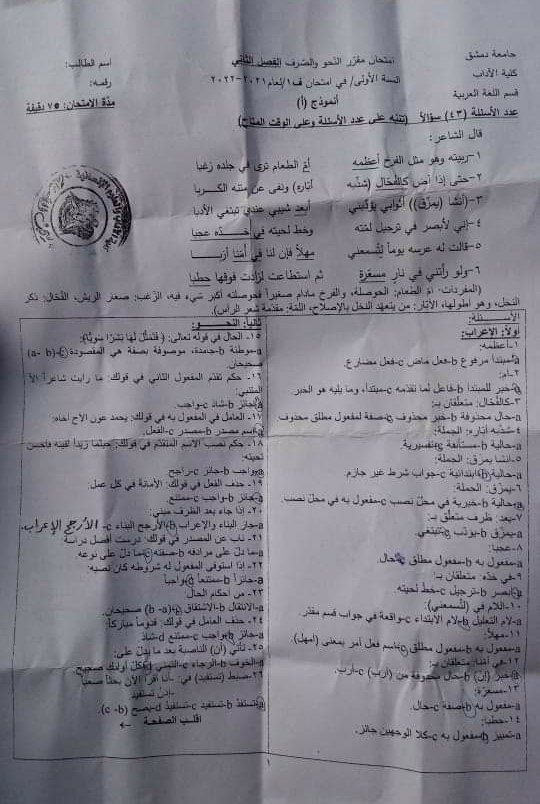 جامعة دمشق
كلية الآداب
قسم اللغة العربية
امتحان مقرّر النحو والصّرف الفصل الثاني
السنة الأولى/ في امتحان ف١/لعام ٢٠٢١-٢٠٢٢
أنموذج (أ)
اسم الطالب:
رقمه:
مدّة الامتحان: ٧٥ دقيقة
عدد الأسئلة (٤٣) سؤالاً (تنبّه على عدد الأسئلة وعلى الوقت المتاح)
قال الشاعر:
١-ربيته وهو مثل الفرخ أعظمه أمّ الطعام ترى في جلده زغبا
٢-حتى إذا آض كالفُحّال شذّبه أبّاره ونفى عن متنه الكربا
٣-أنشا يمزّق أثوابي يؤدّبني أبعد شيبي عندي تبتغي الأدبا
٤-إني لأبصر في ترجيل لمّته وخط لحيته في خدّه عجبا
٥-قالت له عرسه يوماً لتُسمعني مهلاً فإن لنا في أمّنا أربا
٦-ولو رأتني في نار مسعّرة ثم استطاعت لزادت فوقها حطبا
(المفردات- أمّ الطعام: الحوصلة، والفرخ مادام صغيراً فحوصلته أكبر شيء فيه، الزّغب: صغار الريش، الفُحّال: ذكر
النخل، وهو أطولها، الأبّار: من يتعهّد النخل بالإصلاح، اللمّة: مقدّمة شعر الرأس).
الأسئلة:
أولاً: الإعراب:
١-أعظمه:
a-مبتدأ مرفوع b-فعل ماض c-فعل مضارع.
٢-أم:
a-خبر للمبتدأ b-فاعل لما تقدّمه c-مبتدأ، وما يليه هو الخبر.
٣-كالفُحّال: متعلّقان بـ:
a-حال محذوفة b-خبر محذوف c-صفة لمفعول مطلق محذوف
٤-شذّبه أبّاره: الجملة:
a-حالية b-مستأنفة c-تفسيرية
٥-أنشا يمزّق: الجملة:
a-حالية b-ابتدائية c-جواب شرط غير جازم.
٦-يمزّق: الجملة:
a-حالية b-خبرية في محلّ نصب c-مفعول به في محل نصب
٧-بعد: ظرف متعلّق بـ:
a-يمزّق b-يؤدّب c-تبتغي.
٨-عجبا:
a-مفعول به b-مفعول مطلق c-حال.
٩-في خدّه: متعلقان بـ:
a-أبصر b-ترجيل c-خط لحيته
١٠-اللام في (لتُسمعني):
a-لام التعليل b-لام الابتداء c-واقعة في جواب قسم مقدّر.
١١-مهلاً:
a-مفعول به b-مفعول مطلق c-اسم فعل أمر بمعنى (أمهل).
١٢-في أمّنا: متعلقان بـ:
a-خبر (إنّ) b-حال محذوفة من (أرب) c-أرب.
١٣-مسعّرة:
a-مفعول به b-صفة c-حال.
١٤-حطبا:
a-تمييز b-مفعول به c-كلا الوجهين جائز.
ثانياً: النحو:
١٥-الحال في قوله تعالى: (فتمثّل لها بشرًا سويًّا):
a-موطئة b-جامدة، موصوفة بصفة هي المقصودة c-(a- b)
صحيحان.
١٦-حكم تقدّم المفعول الثاني في قولك: ما رأيت شاعراً إلّا
المتنبي:
a-جائز b-شاذ c-واجب.
١٧-العامل في المفعول به في قولك: يحمد عون الأخ أخاه:
a-اسم مصدر b-مصدر c-الفعل.
١٨-حكم نصب الاسم المتقدّم في قولك: حيثما زيداً لقيته فأحسن
تحيته:
a-واجب b-جائز c-راجح
١٩-حذف الفعل في قولك: الأمانة في كل عمل.
a-جائز b-واجب c-ممتنع.
٢٠-إذا جاء بعد الظرف مبني:
a-جاز البناء والإعراب b-الأرجح البناء c- الأرجح الإعراب.
٢١-ناب عن المصدر في قولك: درست أفضل دراسة
a-ما دلّ على مرادفه b-صفته c-ما دلّ على نوعه
٢٢-إذا استوفى المفعول له شروطه كان نصبه:
a-جائزاً b-ممتنعاً c-واجباً
٢٣-من أحكام الحال
a-الانتقال b-الاشتقاق c-(b-a) صحيحان.
٢٤-حذف العامل في قولك: قدوماً مباركاً:
a-جائز b-واجب c-ممتنع d-شاذ
٢٥-تأتي (أن) الناصبة بعد ما يدلّ على:
a-الخوف b-الرجاء c-التمني d-كل أولئك صحيح
٢٦-ضبط (تستفيد) في: -أنا أقرأ الآن بحثاً صعباً
-إذن تستفيد
a-تستفدْ b-تستفيدَ c-تستفيدُ d-يصح (c -b).
اقلب الصفحة ←
١